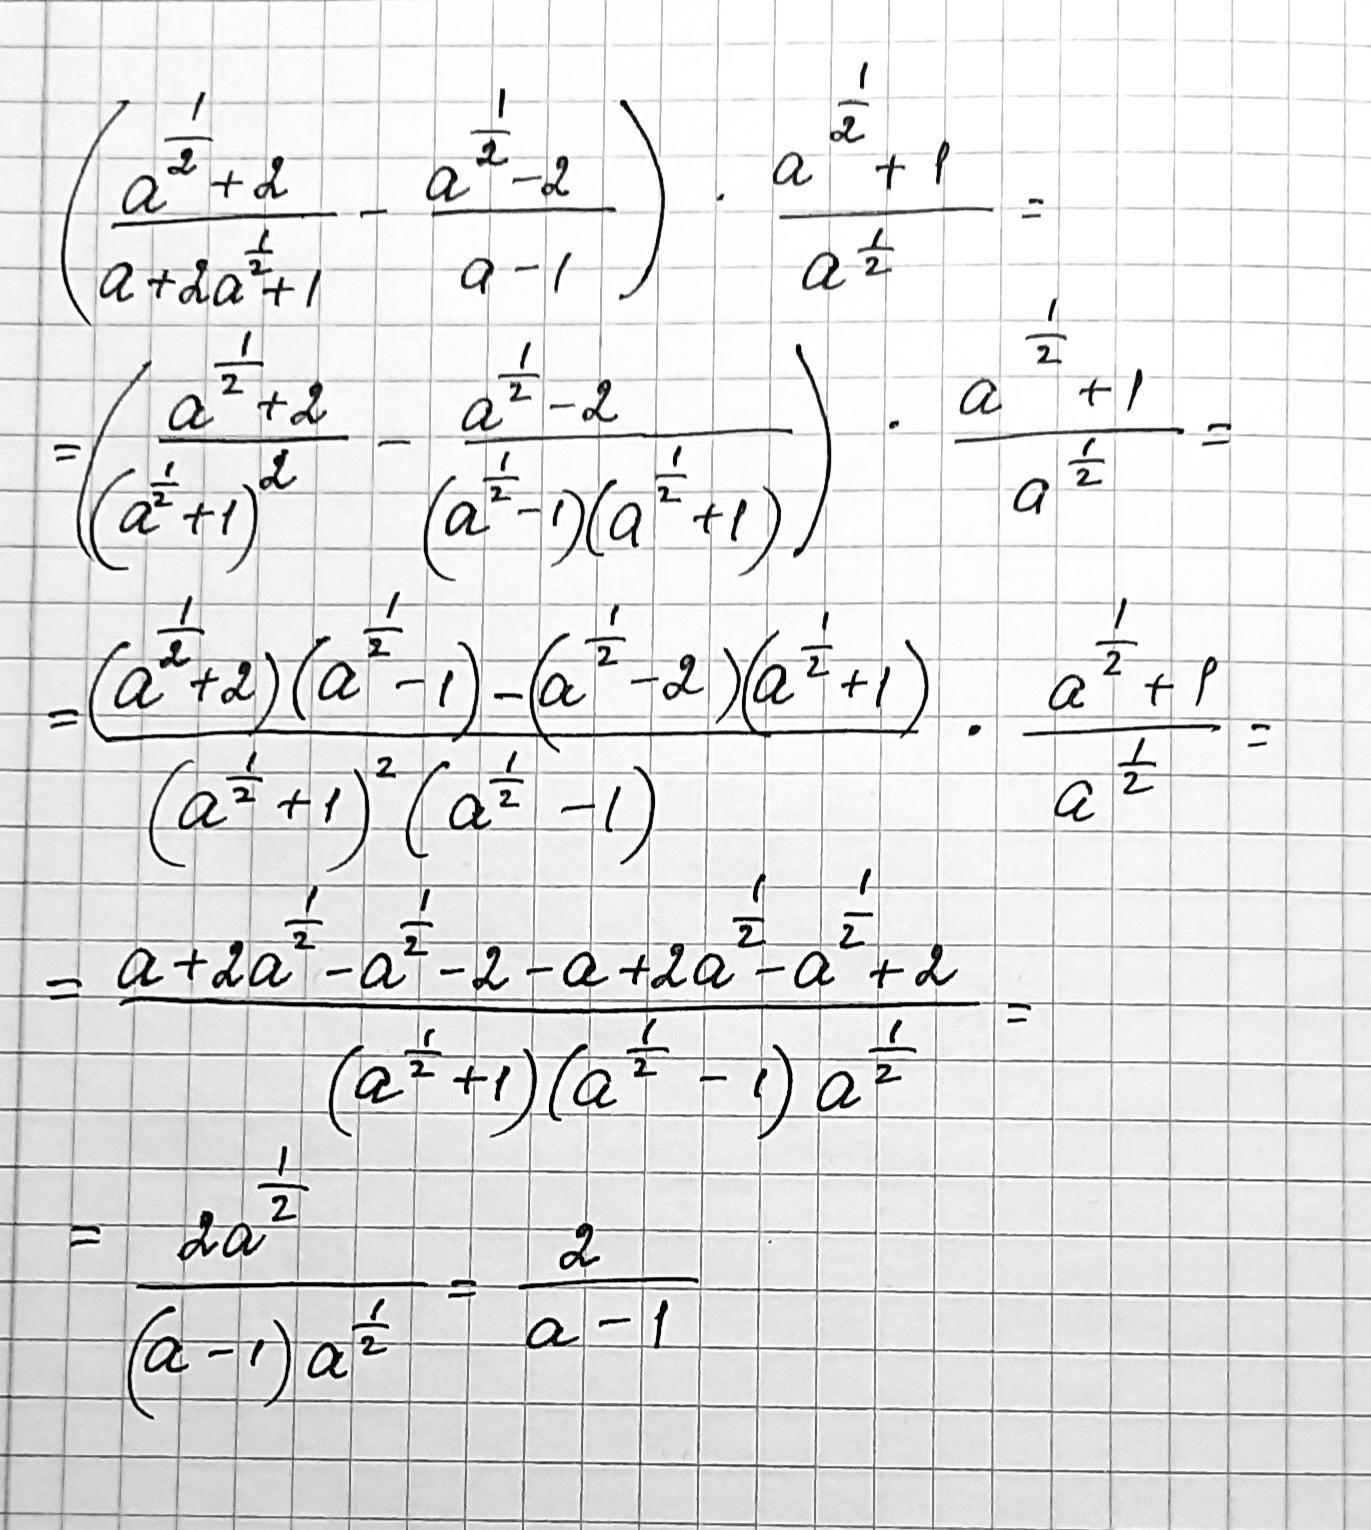 (\frac{a^{\frac{1}{2}}+2}{a+2a^{\frac{1}{2}}+1} - \frac{a^{\frac{1}{2}}-2}{a-1}) \cdot \frac{a^{\frac{1}{2}}+1}{a^{\frac{1}{2}}} =
= (\frac{a^{\frac{1}{2}}+2}{(a^{\frac{1}{2}}+1)^2} - \frac{a^{\frac{1}{2}}-2}{(a^{\frac{1}{2}}-1)(a^{\frac{1}{2}}+1)}) \cdot \frac{a^{\frac{1}{2}}+1}{a^{\frac{1}{2}}} =
= \frac{(a^{\frac{1}{2}}+2)(a^{\frac{1}{2}}-1)-(a^{\frac{1}{2}}-2)(a^{\frac{1}{2}}+1)}{(a^{\frac{1}{2}}+1)^2(a^{\frac{1}{2}}-1)} \cdot \frac{a^{\frac{1}{2}}+1}{a^{\frac{1}{2}}} =
= \frac{a+2a^{\frac{1}{2}}-a^{\frac{1}{2}}-2-a+2a^{\frac{1}{2}}-a^{\frac{1}{2}}+2}{(a^{\frac{1}{2}}+1)(a^{\frac{1}{2}}-1)a^{\frac{1}{2}}} =
= \frac{2a^{\frac{1}{2}}}{(a-1)a^{\frac{1}{2}}} = \frac{2}{a-1}